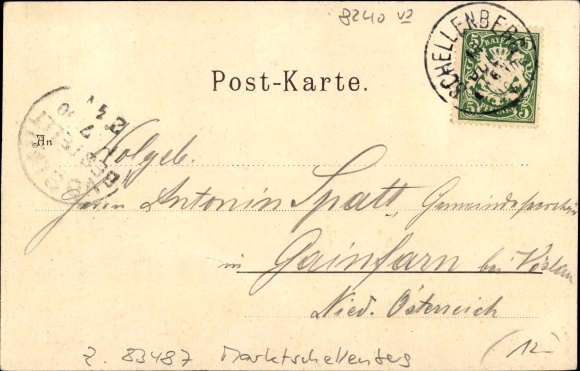 8240 V2
SCHELLENBERG
5 BAYERN 5
5 5
Post-Karte.
An
Holgeb.
Herrn Antonin Spatt, Gemeindevorsteher
in Gainfarn bei Vöslau
Nied. Österreich
Z. 83487 Marktschellenberg
(12-